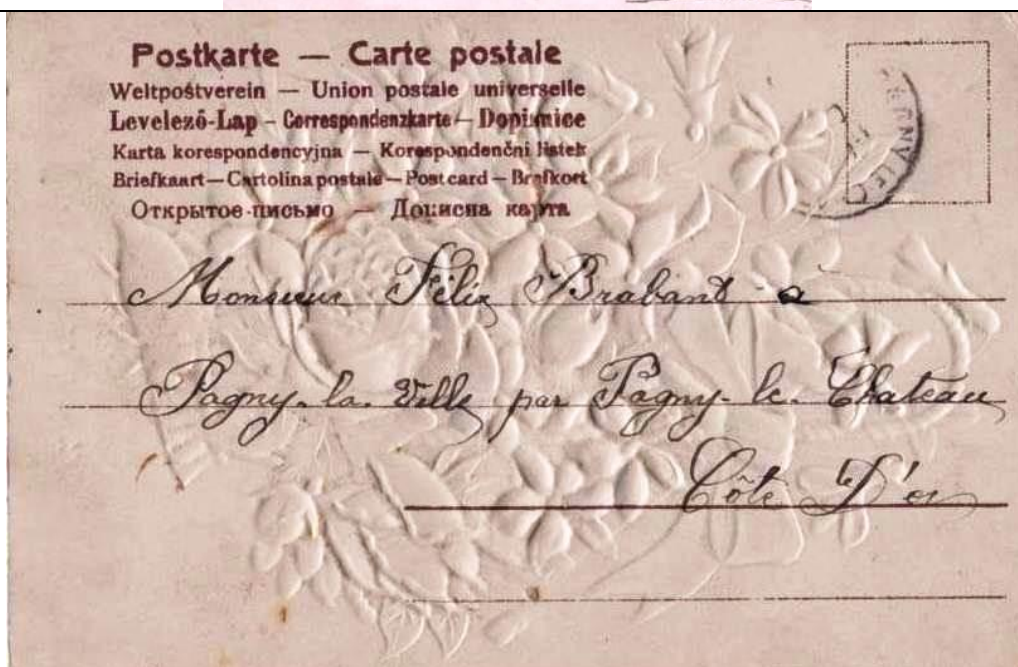 Postkarte — Carte postale
Weltpostverein — Union postale universelle
Levelező-Lap - Correspondenzkarte - Dopisnice
Karta korespondencyjna — Korespondenčni listek
Briefkaart — Cartolina postale — Post card — Brefkort
Открытое письмо — Дописна карта
Monsieur Félix Brabant a
Pagny-la-Ville par Pagny-le-Chateau
Côte D'or